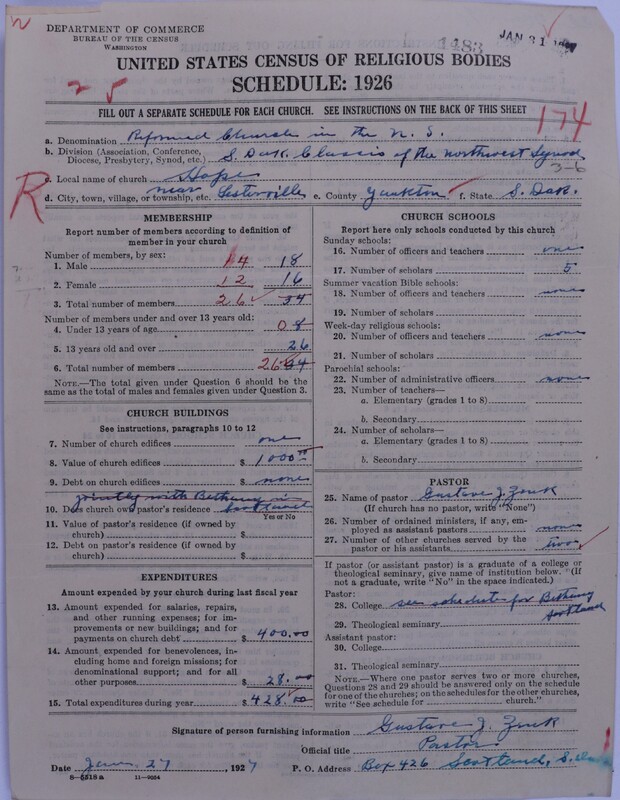 DEPARTMENT OF COMMERCE
BUREAU OF THE CENSUS
WASHINGTON
1483
JAN 31
UNITED STATES CENSUS OF RELIGIOUS BODIES
SCHEDULE: 1926
FILL OUT A SEPARATE SCHEDULE FOR EACH CHURCH. SEE INSTRUCTIONS ON THE BACK OF THIS SHEET
174
a. Denomination Reformed Church in the U. S.
b. Division (Association, Conference, Diocese, Presbytery, Synod, etc.) S. Dak. Classis of the Northwest Synod
3-6
R
c. Local name of church Hope
d. City, town, village, or township, etc. near Lesterville e. County Yankton f. State S. Dak.
MEMBERSHIP
Report number of members according to definition of member in your church
Number of members, by sex:
1. Male 14 18
2. Female 12 16
3. Total number of members 26 34
Number of members under and over 13 years old:
4. Under 13 years of age 0 8
5. 13 years old and over 26
6. Total number of members 26 34
NOTE.—The total given under Question 6 should be the same as the total of males and females given under Question 3.
CHURCH BUILDINGS
See instructions, paragraphs 10 to 12
7. Number of church edifices one
8. Value of church edifices $ 1000.00
9. Debt on church edifices $ none
jointly with Bethany in
10. Does church own pastor's residence Scotland
Yes or No
11. Value of pastor's residence (if owned by church) $
12. Debt on pastor's residence (if owned by church) $
EXPENDITURES
Amount expended by your church during last fiscal year
13. Amount expended for salaries, repairs, and other running expenses; for improvements or new buildings; and for payments on church debt $ 400.00
14. Amount expended for benevolences, including home and foreign missions; for denominational support; and for all other purposes $ 28.00
15. Total expenditures during year $ 428.00
CHURCH SCHOOLS
Report here only schools conducted by this church
Sunday schools:
16. Number of officers and teachers one
17. Number of scholars 5
Summer vacation Bible schools:
18. Number of officers and teachers none
19. Number of scholars
Week-day religious schools:
20. Number of officers and teachers none
21. Number of scholars
Parochial schools:
22. Number of administrative officers none
23. Number of teachers—
a. Elementary (grades 1 to 8)
b. Secondary
24. Number of scholars—
a. Elementary (grades 1 to 8)
b. Secondary
PASTOR
25. Name of pastor Gustave J. Zenk
(If church has no pastor, write "None")
26. Number of ordained ministers, if any, employed as assistant pastors none
27. Number of other churches served by the pastor or his assistants two
If pastor (or assistant pastor) is a graduate of a college or theological seminary, give name of institution below. (If not a graduate, write "No" in the space indicated.)
Pastor:
28. College see schedule for Bethany
Scotland
29. Theological seminary
Assistant pastor:
30. College
31. Theological seminary
NOTE.—Where one pastor serves two or more churches, Questions 28 and 29 should be answered only on the schedule for one of the churches; on the schedules for the other churches, write "See schedule for church."
Signature of person furnishing information Gustave J. Zenk
Official title Pastor
Date Jan. 27, 1927 P. O. Address Box 426 Scotland, S. Dak.
8-5518a 11-9034